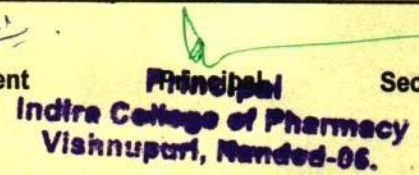 ent Principal Sec
Principal
Indira College of Pharmacy
Vishnupuri, Nanded-06.